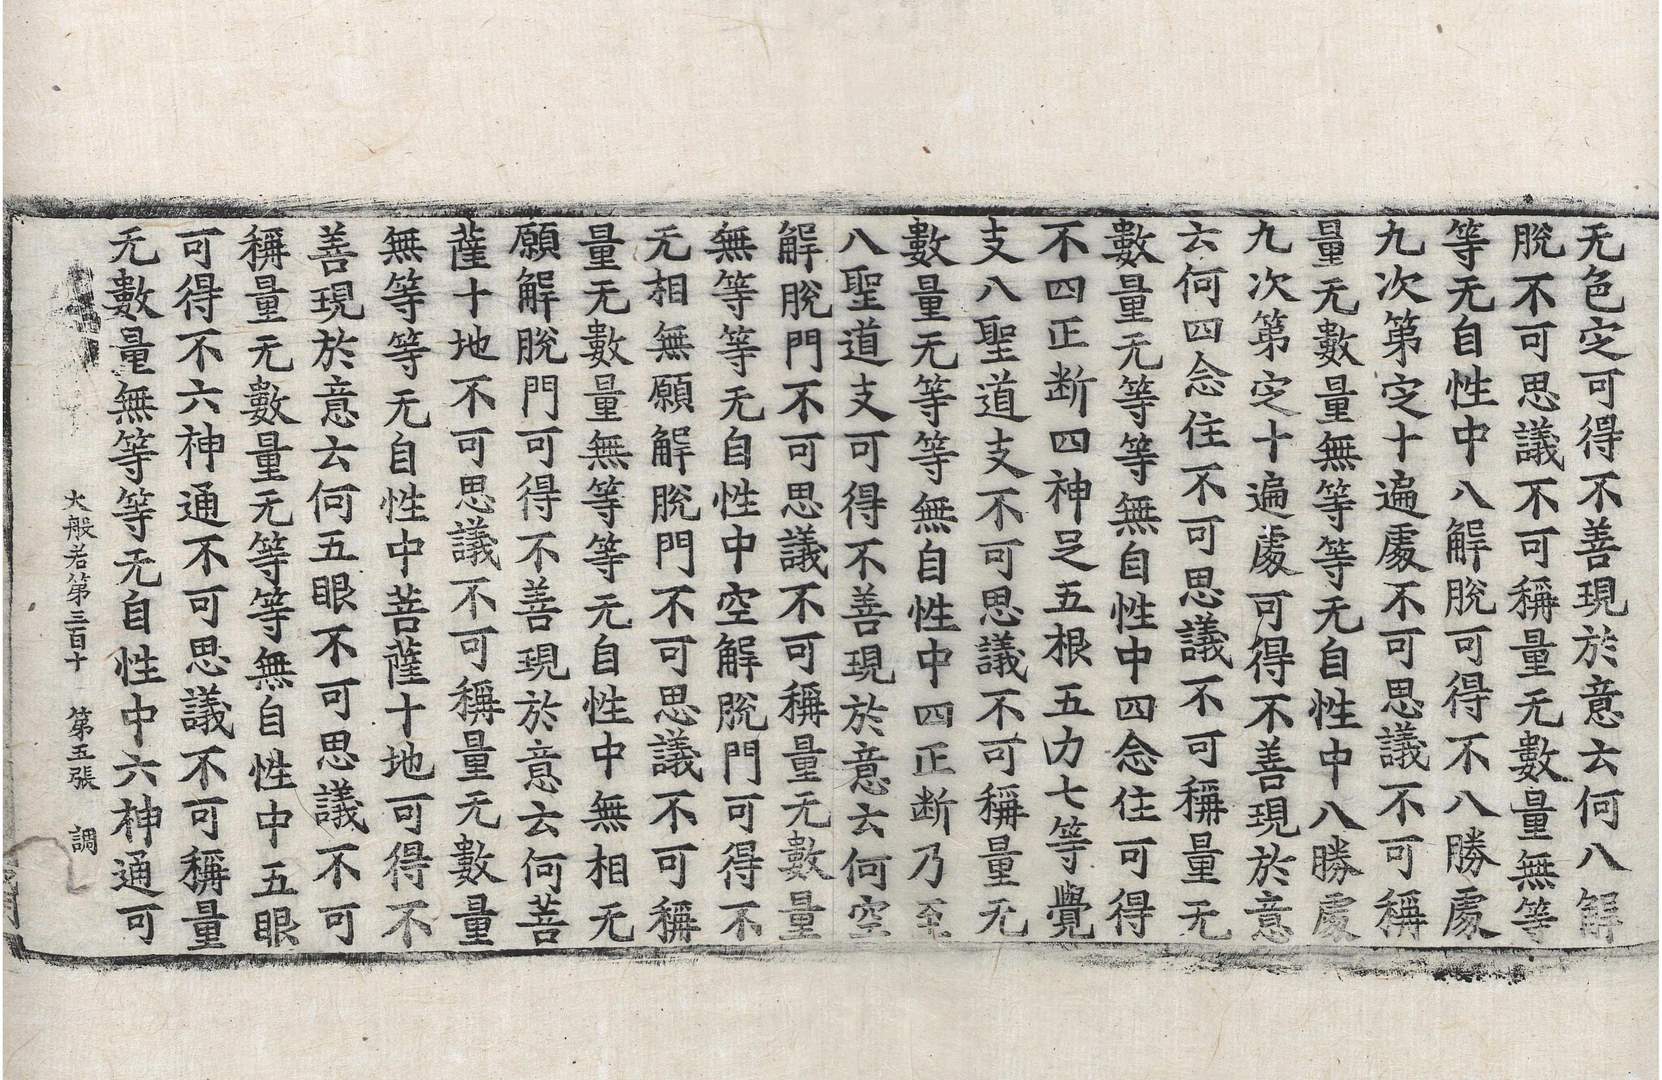 无色定可得不善現於意云何八解
脫不可思議不可稱量无數量無等
等无自性中八解脫可得不八勝處
九次第定十遍處不可思議不可稱
量无數量無等等无自性中八勝處
九次第定十遍處可得不善現於意
云何四念住不可思議不可稱量无
數量无等等無自性中四念住可得
不四正断四神足五根五力七等覺
支八聖道支不可思議不可稱量无
數量无等等無自性中四正断乃至
八聖道支可得不善現於意云何空
解脫門不可思議不可稱量无數量
無等等无自性中空解脫門可得不
无相無願解脫門不可思議不可稱
量无數量無等等无自性中無相无
願解脫門可得不善現於意云何菩
薩十地不可思議不可稱量无數量
無等等无自性中菩薩十地可得不
善現於意云何五眼不可思議不可
稱量无數量无等等無自性中五眼
可得不六神通不可思議不可稱量
无數量無等等无自性中六神通可
大般若第三百十 第五張 調